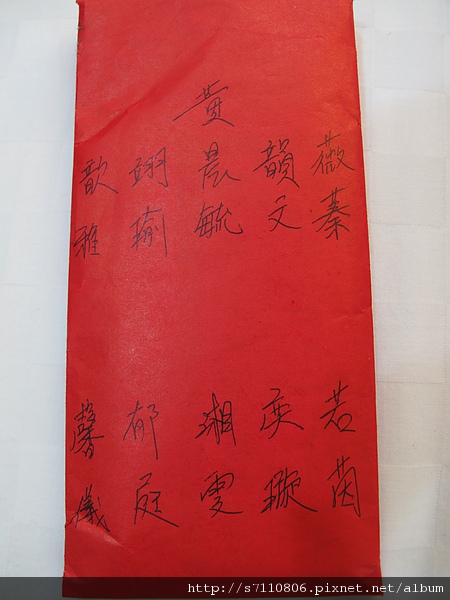 黃
薇蓁
韻文
晨毓
翊瑜
歆雅
若茵
奕璇
湘雯
郁庭
馨儀
http://s7110806.pixnet.net/album